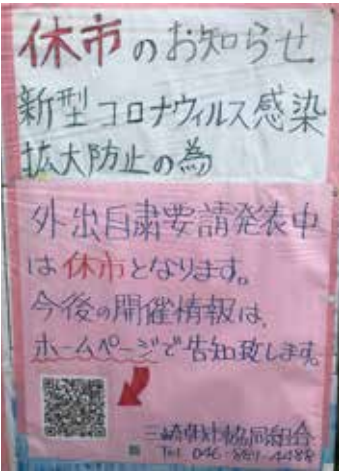 休市のお知らせ
新型コロナウィルス感染
拡大防止の為
外出自粛要請発表中
は休市となります。
今後の開催情報は、
ホームページで告知致します。
三崎朝市協同組合
Tel 046-881-4488